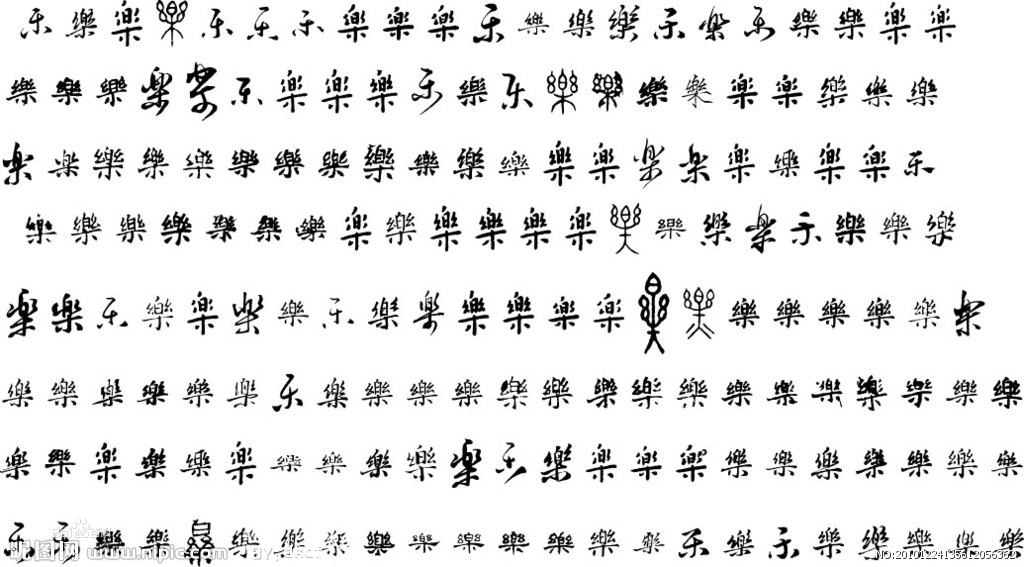 乐樂樂樂乐乐乐樂樂樂乐樂樂樂乐楽乐樂樂樂樂
樂樂樂楽楽乐樂樂樂乐樂乐樂樂樂樂樂樂樂樂樂
楽楽樂樂樂樂樂樂樂樂樂樂樂樂楽楽楽樂樂樂乐
樂樂樂樂樂樂樂樂樂樂樂樂樂樂樂樂楽乐樂樂樂
楽樂乐樂楽樂樂乐樂楽樂樂樂樂樂樂樂樂樂樂樂楽
樂樂樂樂樂樂乐樂樂樂樂樂樂樂樂樂樂樂樂樂樂樂樂
樂樂樂樂樂樂樂樂樂樂楽乐樂樂樂樂樂樂樂樂樂樂樂
乐乐樂樂樂樂樂樂樂樂樂樂樂樂樂乐樂乐樂樂樂樂樂
昵图网 www.nipic.com